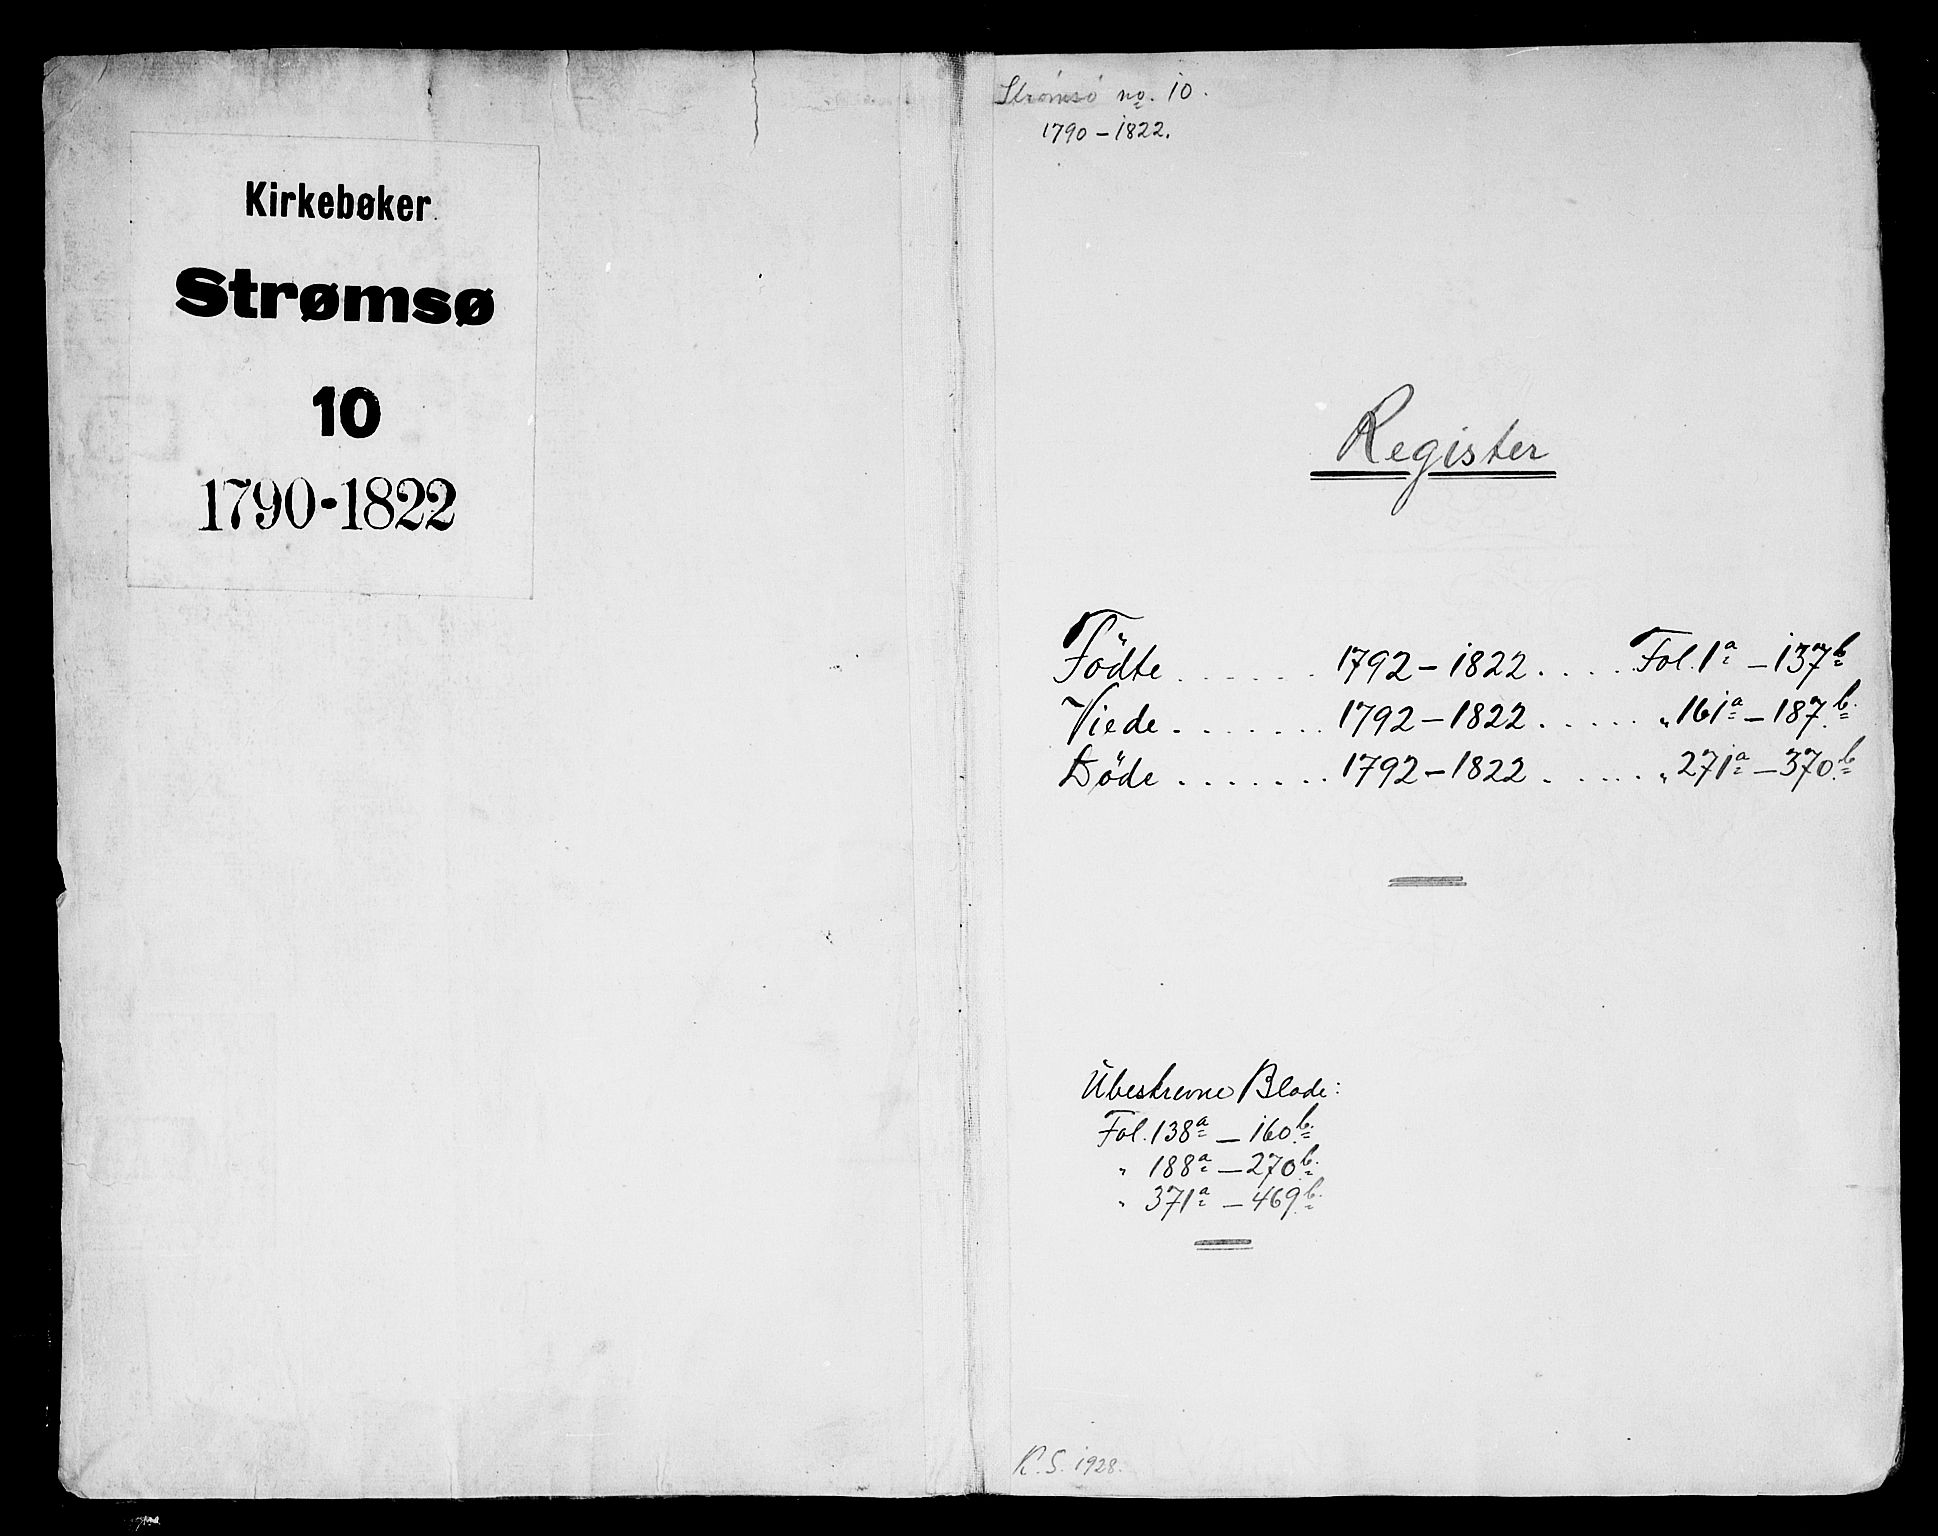 Kirkebøker
Strømsø
10
1790-1822
Strømsø no. 10.
1790 – 1822.
Register
Födte ...... 1792 – 1822 .... Fol. 1a – 137b
Viede ....... 1792 – 1822 ..... " 161a – 187b.
Döde ....... 1792 – 1822 ..... " 271a – 370b
Ubeskrevne Blade:
Fol. 138a – 160b.
" 188a – 270b.
" 371a – 469b.
K. S. 1928.